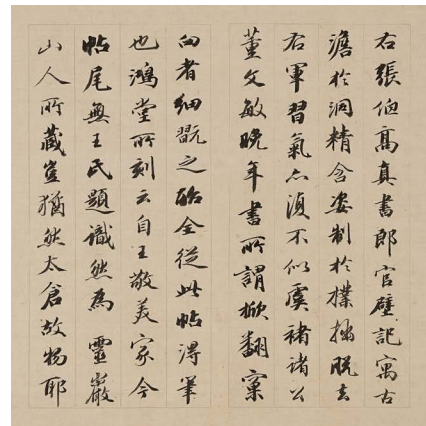 右張伯高真書郎官壁記寓古
澹於洞精含姿制於樸拙脫去
右軍習氣亦復不似虞褚諸公
董文敏晚年書所謂掀翻窠
臼者細翫之殆全從此帖得筆
也鴻堂所刻云自王敬美家今
帖尾無王氏題識然為靈巖
山人所藏豈猶然太倉故物耶